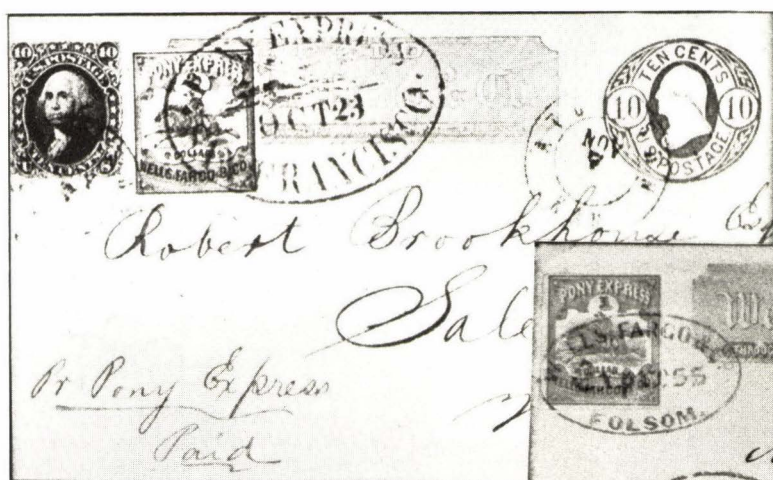 10 10
U.S. POSTAGE
PONY EXPRESS
DOLLARS
WELLS. FARGO & CO.
PONY EXPRESS
OCT 23
SAN FRANCISCO.
NOV
TEN CENTS
10 10
U.S. POSTAGE
Robert Brookhouse Esq
Sale
Pr Pony Express
Paid
PONY EXPRESS
1
DOLLAR
WELLS. FARGO &
EXPRESS
FOLSOM.